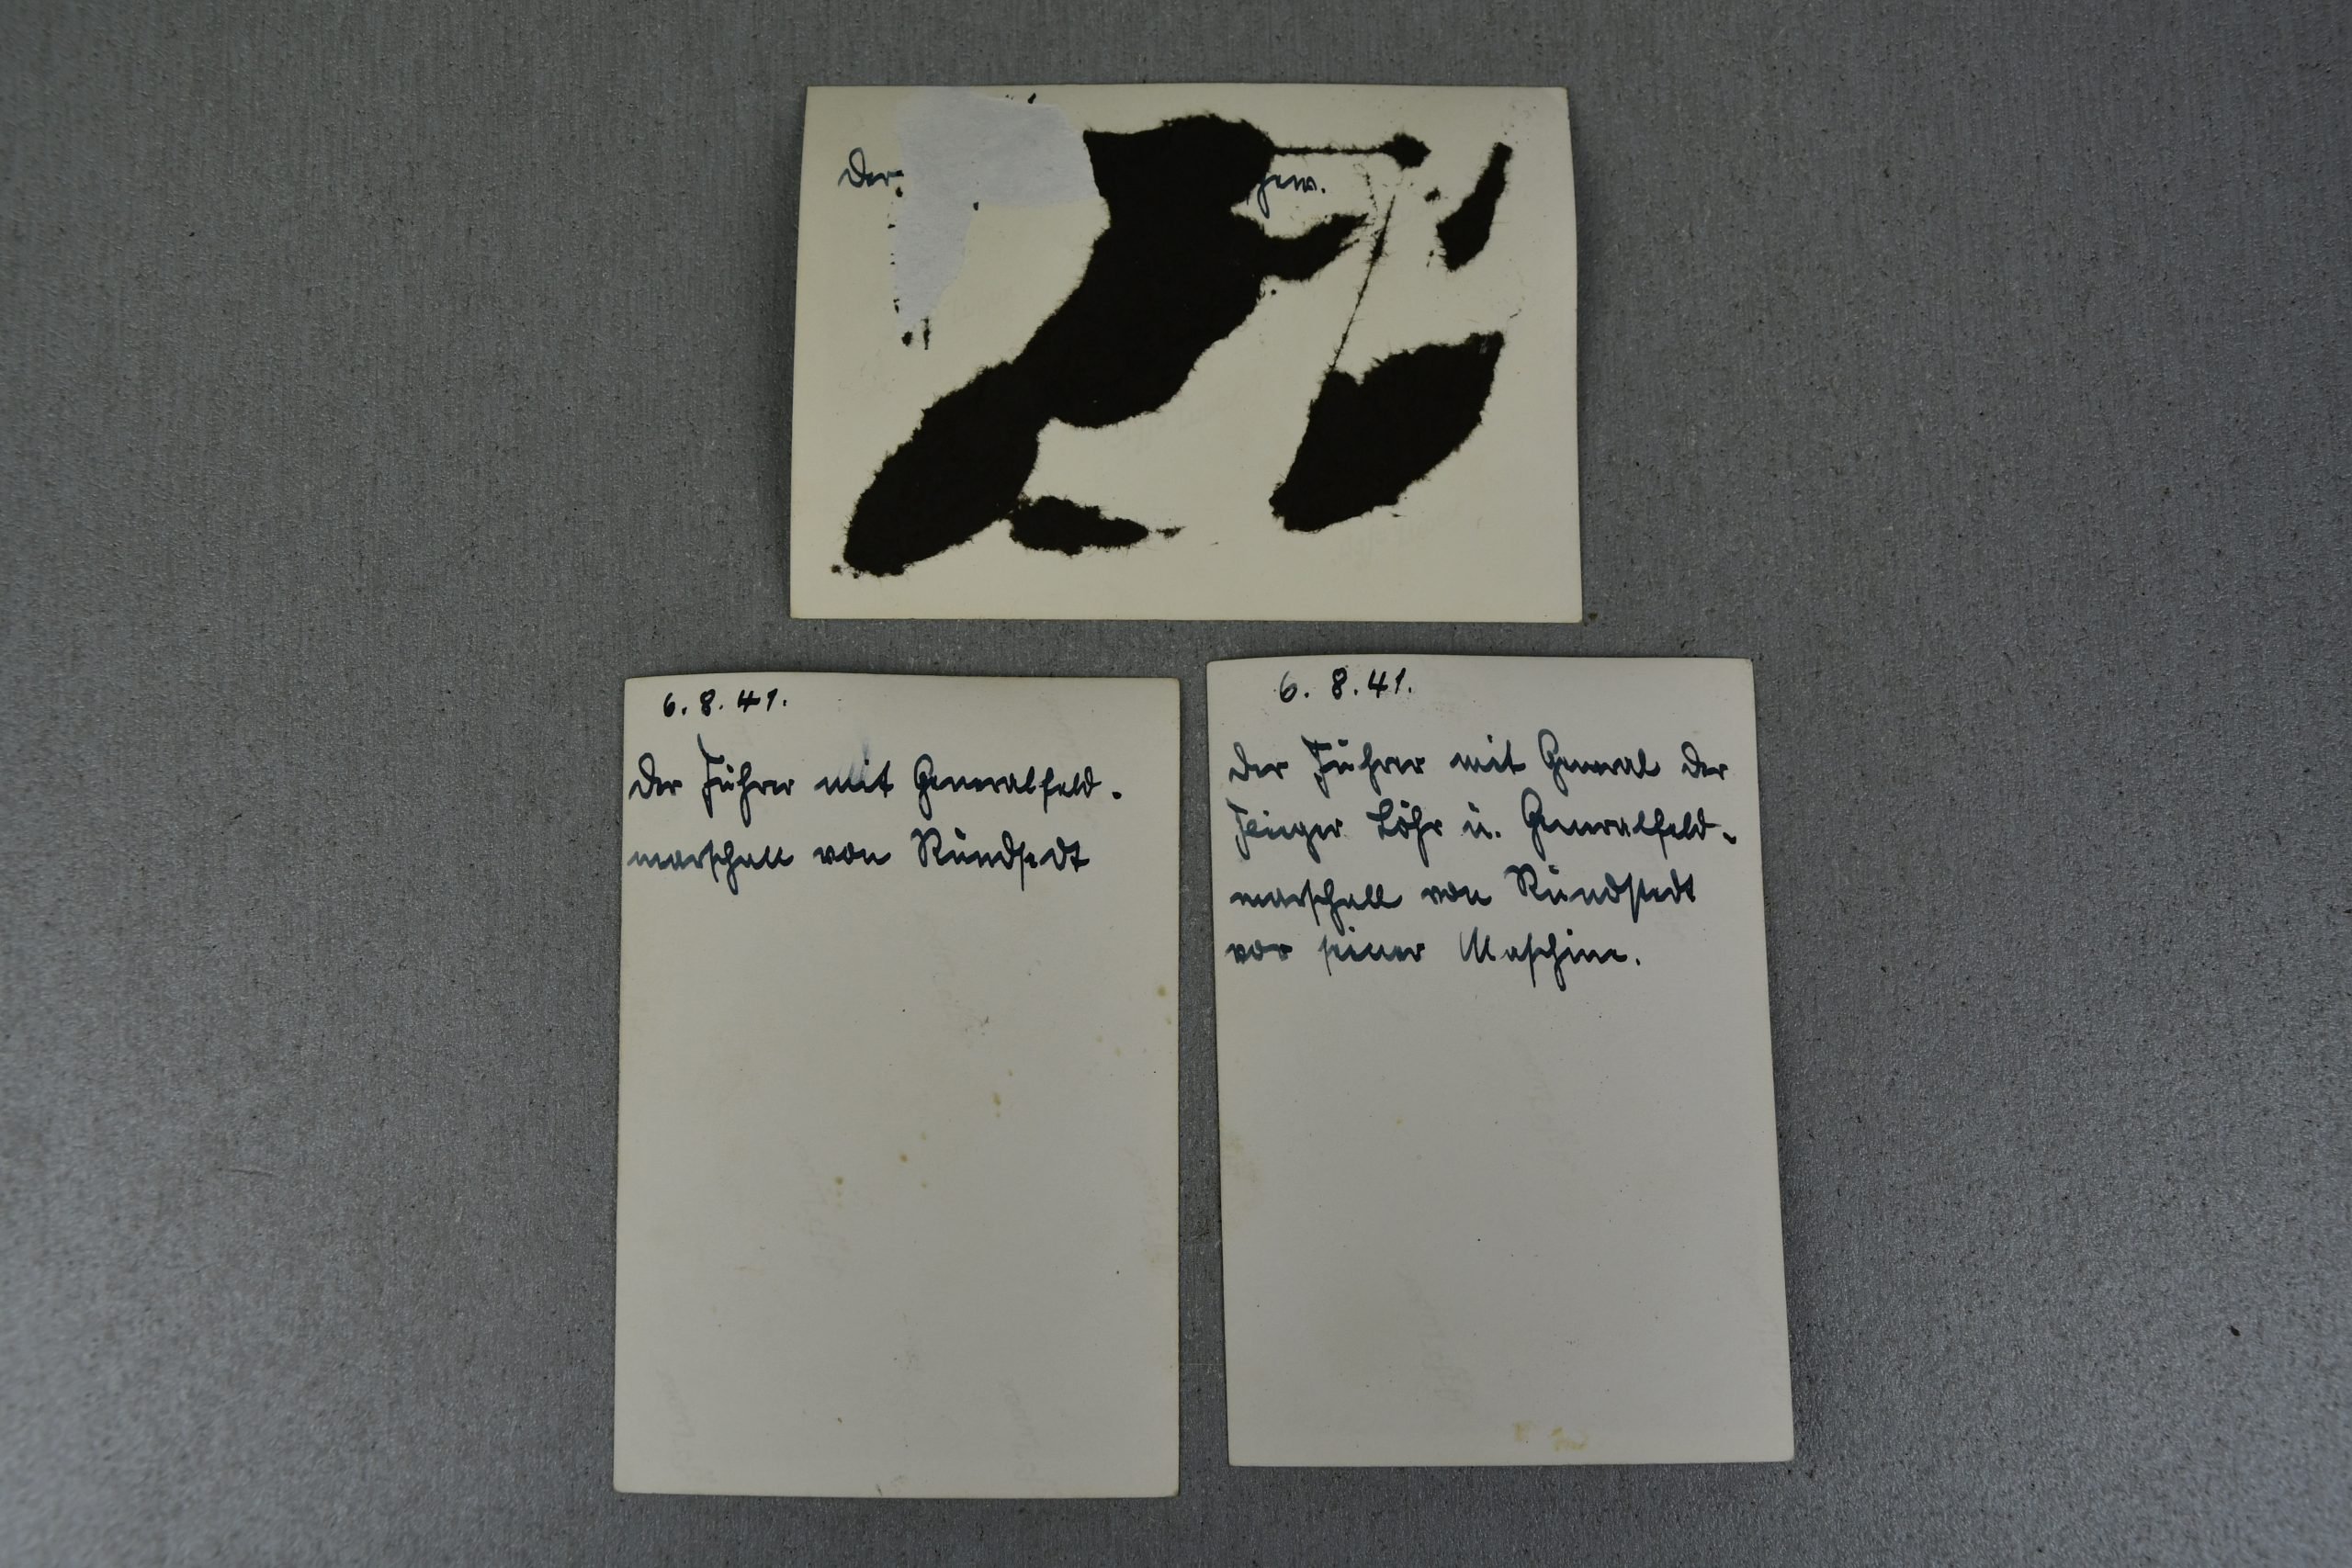 Der
6.8.41.
Der Führer mit Generalfeld-
marschall von Rundstedt
6.8.41.
Der Führer mit General der
Flieger Löhr u. Generalfeld-
marschall von Rundstedt
vor seiner Maschine.